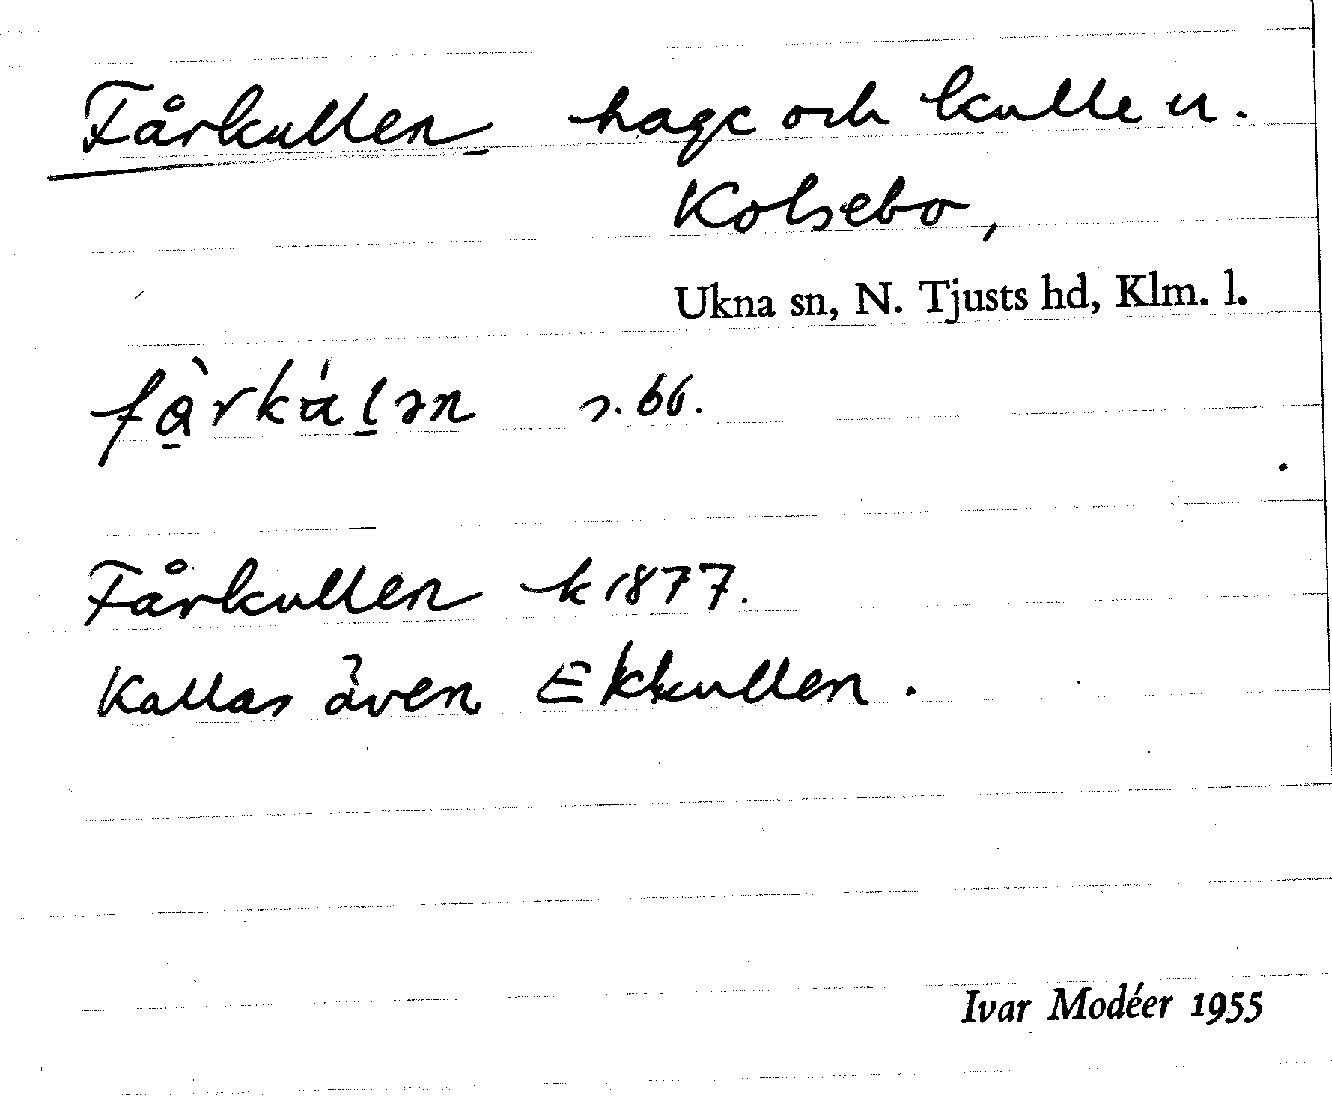 Fårkullen hage och kulle u.
Kolsebo,
Ukna sn, N. Tjusts hd, Klm. l.
s. 66.
Fårkullen k 1877.
Kallas även Ekkullen.
Ivar Modéer 1955